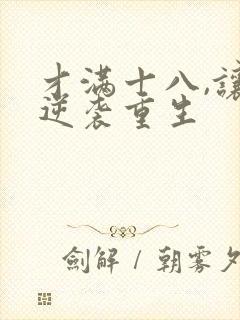 才滿十八,讓
逆袭重生
劍解 / 朝雾夕